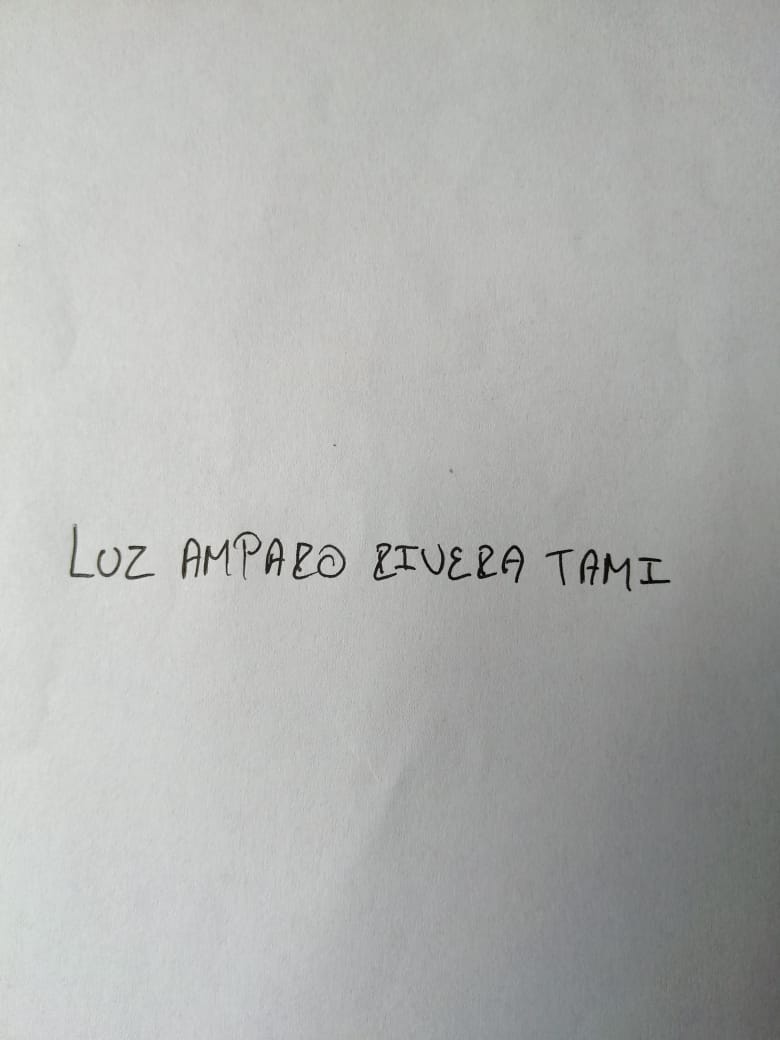 LUZ AMPARO RIVERA TAMI